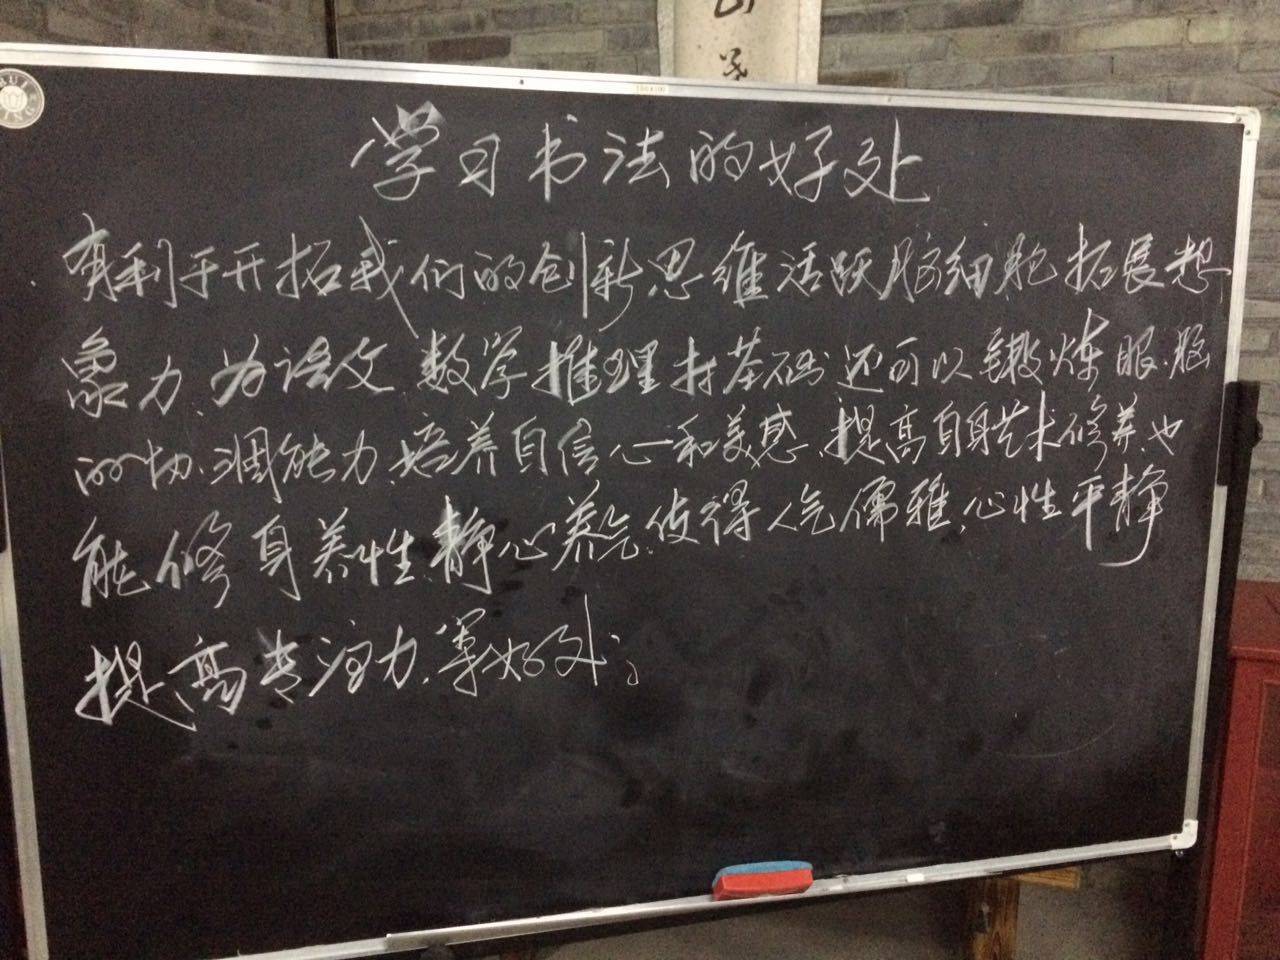 学习书法的好处
有利于开拓我们的创新思维活跃脑细胞拓展想
象力、为语文、数学推理打基础还可以锻炼眼、脑
的协调能力、培养自信心和美感、提高自身艺术修养、也
能修身养性、静心养气、使得人气儒雅、心性平静
提高专注力、等好处;